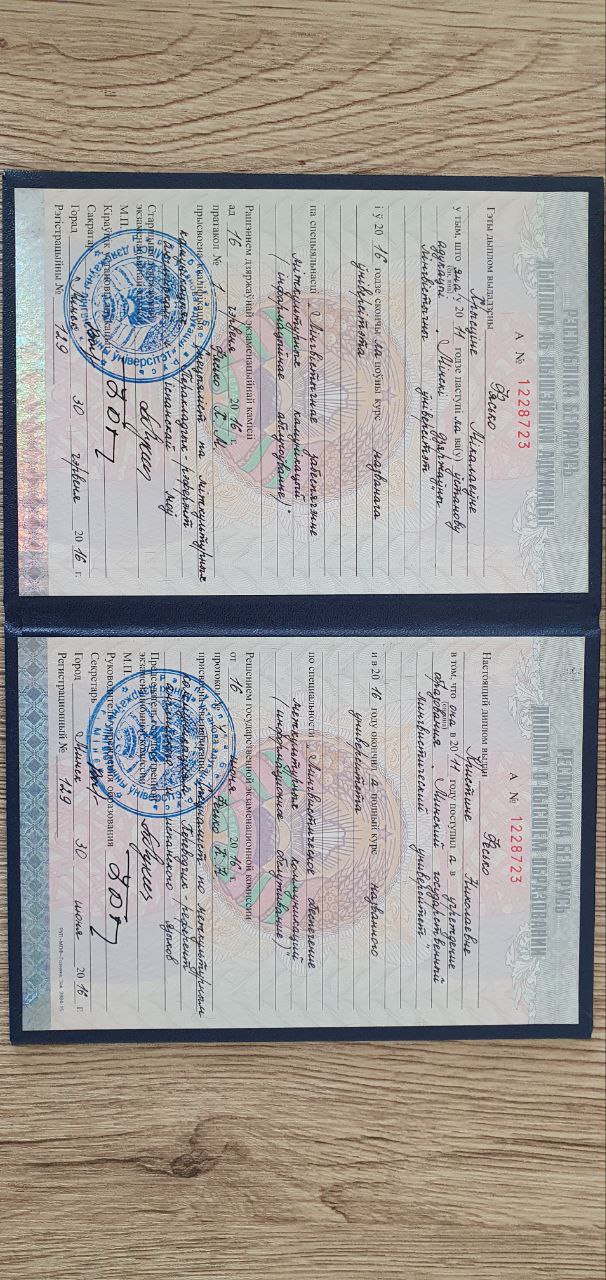 РЭСПУБЛІКА БЕЛАРУСЬ
ДЫПЛОМ АБ ВЫШЭЙШАЙ АДУКАЦЫІ
А № 1228723
Гэты дыплом выдадзены Фясько
Мікалаеўне
у тым, што яна ў 20 11 годзе паступі ла ва(у) установу
адукацыі „Мінскі дзяржаўны
лінгвістычны універсітэт“
і ў 20 16 годзе скончы ла поўны курс названага
універсітэта
па спецыяльнасці „Лінгвістычнае забеспячэнне
міжкультурных камунікацый
(інфармацыйнае абслугоўванне)“
Рашэннем дзяржаўнай экзаменацыйнай камісіі
ад 16 чэрвеня 20 16 г.
пратакол № 1 Фясько К. М.
прысвоена кваліфікацыя Спецыяліст па міжкультурных
камунікацыях. Перакладчык-рэферэнт
іспанскай моў
Старшыня
экзаменацыйнай
М.П.
Кіраўнік
Сакратар
Горад Мінск 30 чэрвеня 20 16 г.
Рэгістрацыйны № 129
РЕСПУБЛИКА БЕЛАРУСЬ
ДИПЛОМ О ВЫСШЕМ ОБРАЗОВАНИИ
А № 1228723
Настоящий диплом выдан Фесько
Кристине Николаевне
в том, что она в 20 11 году поступил а в учреждение
образования „Минский государственный
лингвистический университет“
и в 20 16 году окончил а полный курс названного
университета
по специальности „Лингвистическое обеспечение
межкультурных коммуникаций
(информационное обслуживание)“
Решением государственной экзаменационной комиссии
от 16 июня 20 16 г.
протокол № 1 Фесько К. Н.
присвоена квалификация Специалист по межкультурным
коммуникациям. Переводчик-референт
испанского языков
Председатель
экзаменационной
М.П.
Руководитель учреждения образования
Секретарь
Город Минск 30 июня 20 16 г.
Регистрационный № 129